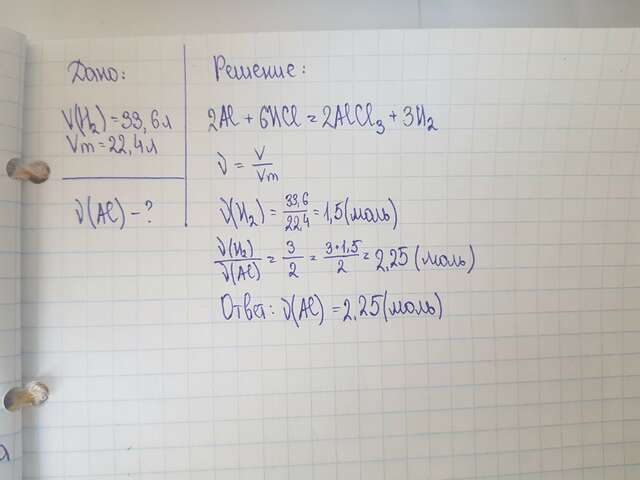 Дано:
V(H₂) = 33,6л
Vm = 22,4л
ν(Al) - ?
Решение:
2Al + 6HCl = 2AlCl₃ + 3H₂
ν = V/Vm
ν(H₂) = 33,6/22,4 = 1,5(моль)
ν(H₂)/ν(Al) = 3/2 = 3*1,5/2 = 2,25 (моль)
Ответ: ν(Al) = 2,25(моль)